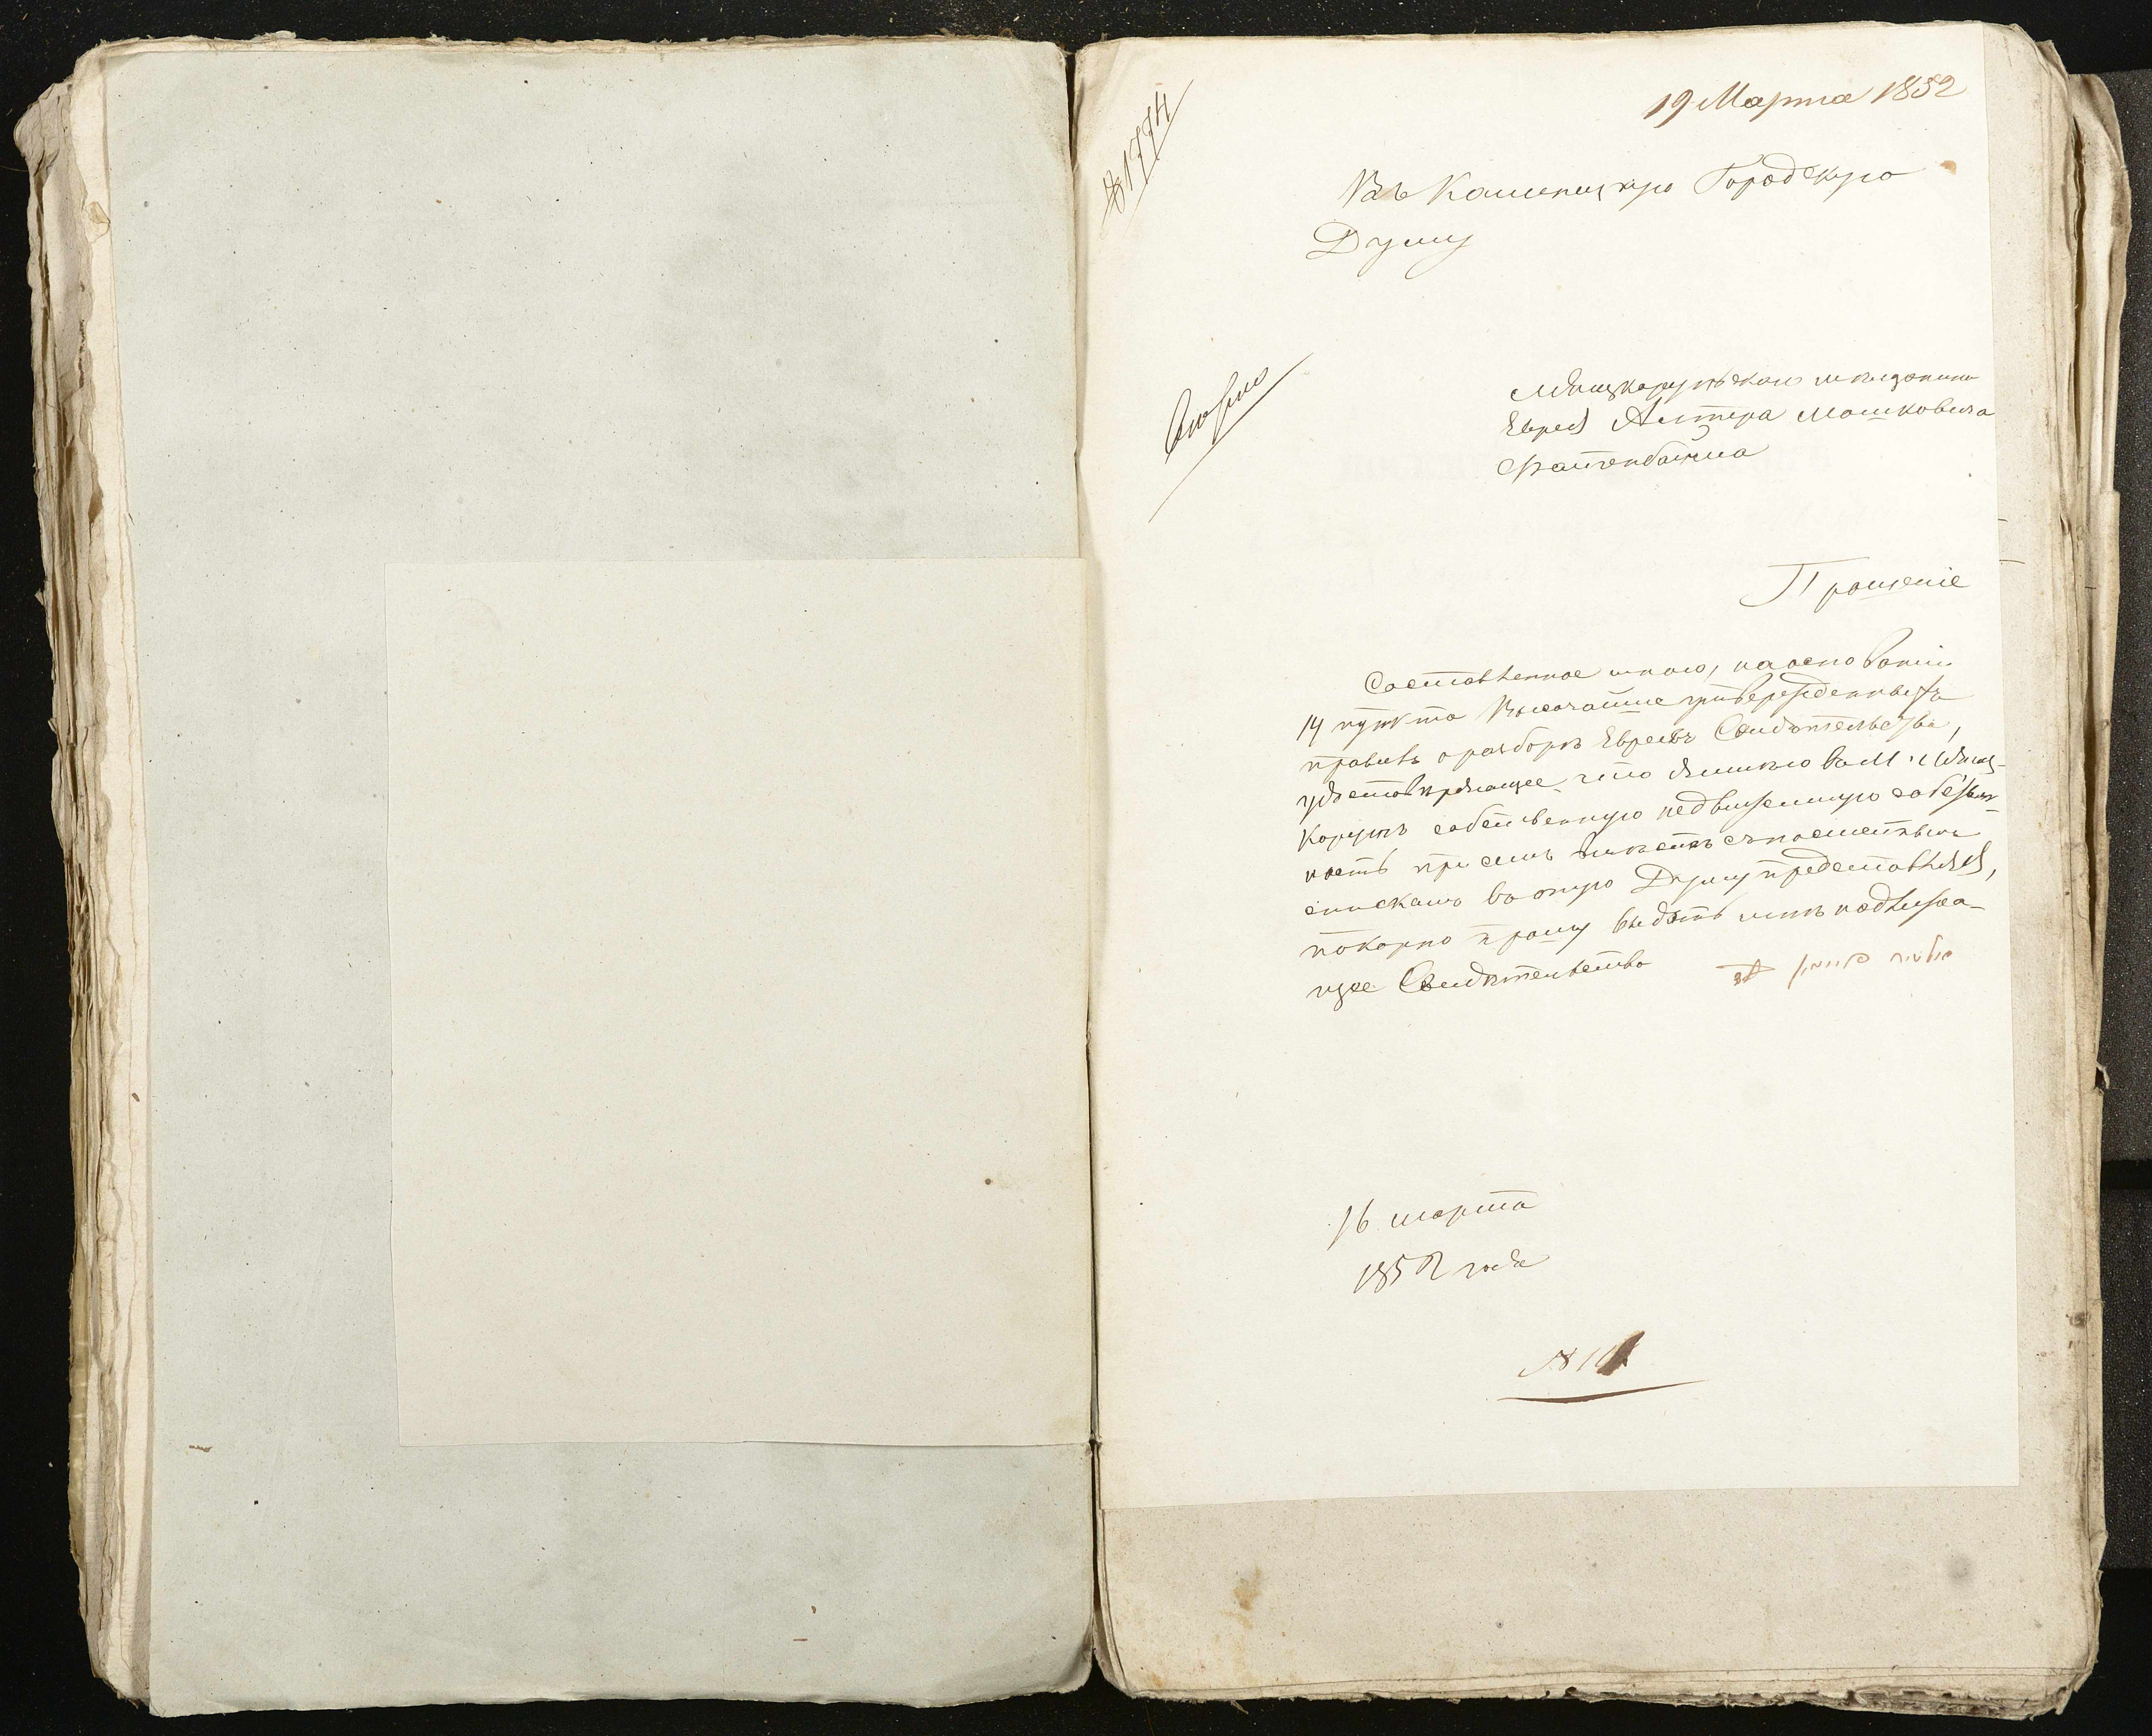 № 1774
19 Марта 1852
Въ Каменецкую Городскую
Думу
Ляцкорунского мещанина
Еврея Алтера Мошковича
Прошеніе
Составленное мною, на основаніи
14 пункта Высочайше утвержденныхъ
правилъ о разборѣ Евреевъ Свидѣтельство,
удостовѣряющее что я имѣю въ М. Ляц-
корунѣ собственную недвижимую собствен-
ность при семъ вмѣстѣ съ посемейнымъ
спискомъ во оную Думу представляя,
покорно прошу выдать мнѣ надлежа-
щее Свидѣтельство
16 марта
1852 года